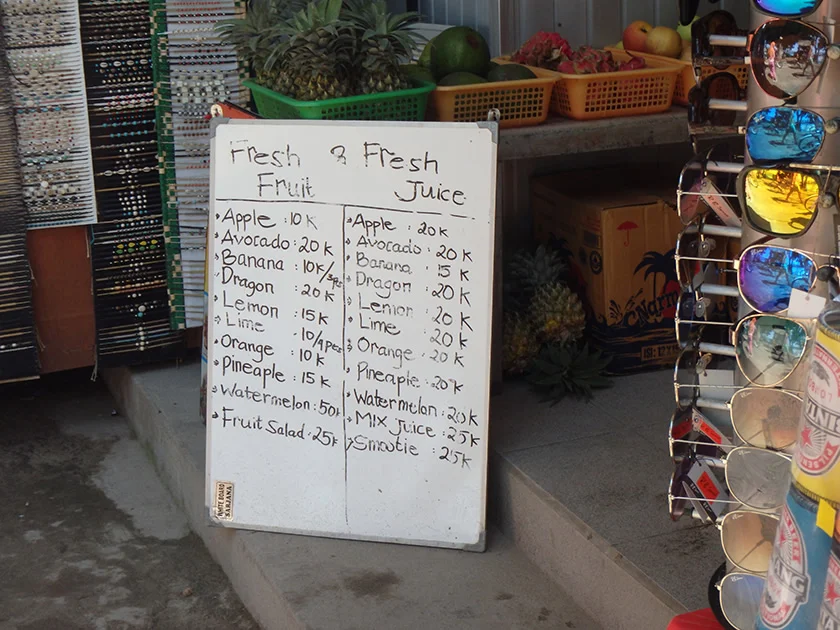 Fresh & Fresh
Fruit Juice
Apple : 10 K
Avocado : 20 K
Banana : 10K/3pes
Dragon : 20 K
Lemon : 15 K
Lime : 10/4pes
Orange : 10 K
Pineaple : 15 K
Watermelon : 50K
Fruit Salad : 25K
Apple : 20 K
Avocado : 20 K
Banana : 15 K
Dragon : 20 K
Lemon : 20 K
Lime : 20 K
Orange : 20 K
Pineaple : 20 K
Watermelon : 20 K
MIX Juice : 25 K
Smootie : 25 K
WHITE BOARD
SARJANA